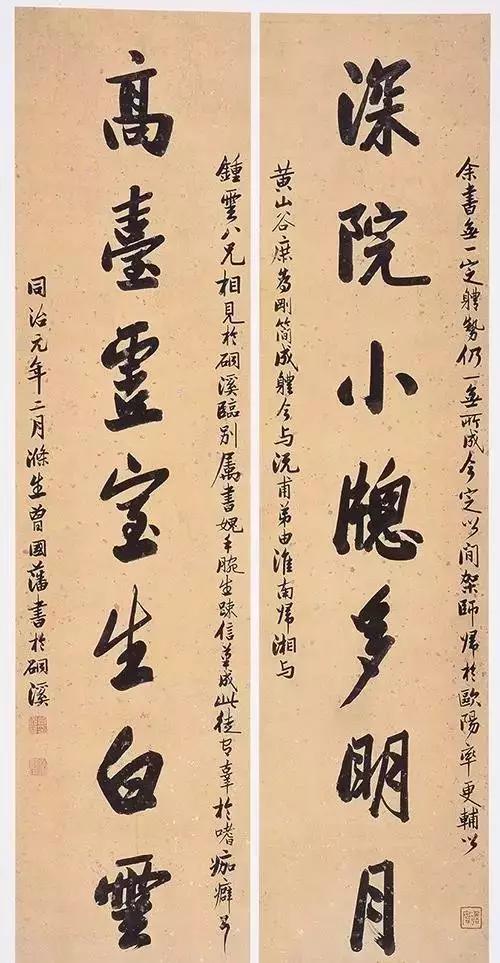 余書無一定體勢仍一無所成今定以間架師歸於歐陽率更輔以
深院小牕多明月
黃山谷庶為剛簡成體今与沅甫弟由淮南歸湘与
鍾雲八兄相見於硐溪臨別屬書媿手腕生疎信草成此徒辜於嗜痂癖耳
高臺虛室生白雲
同治元年二月滌生曾國藩書於硐溪